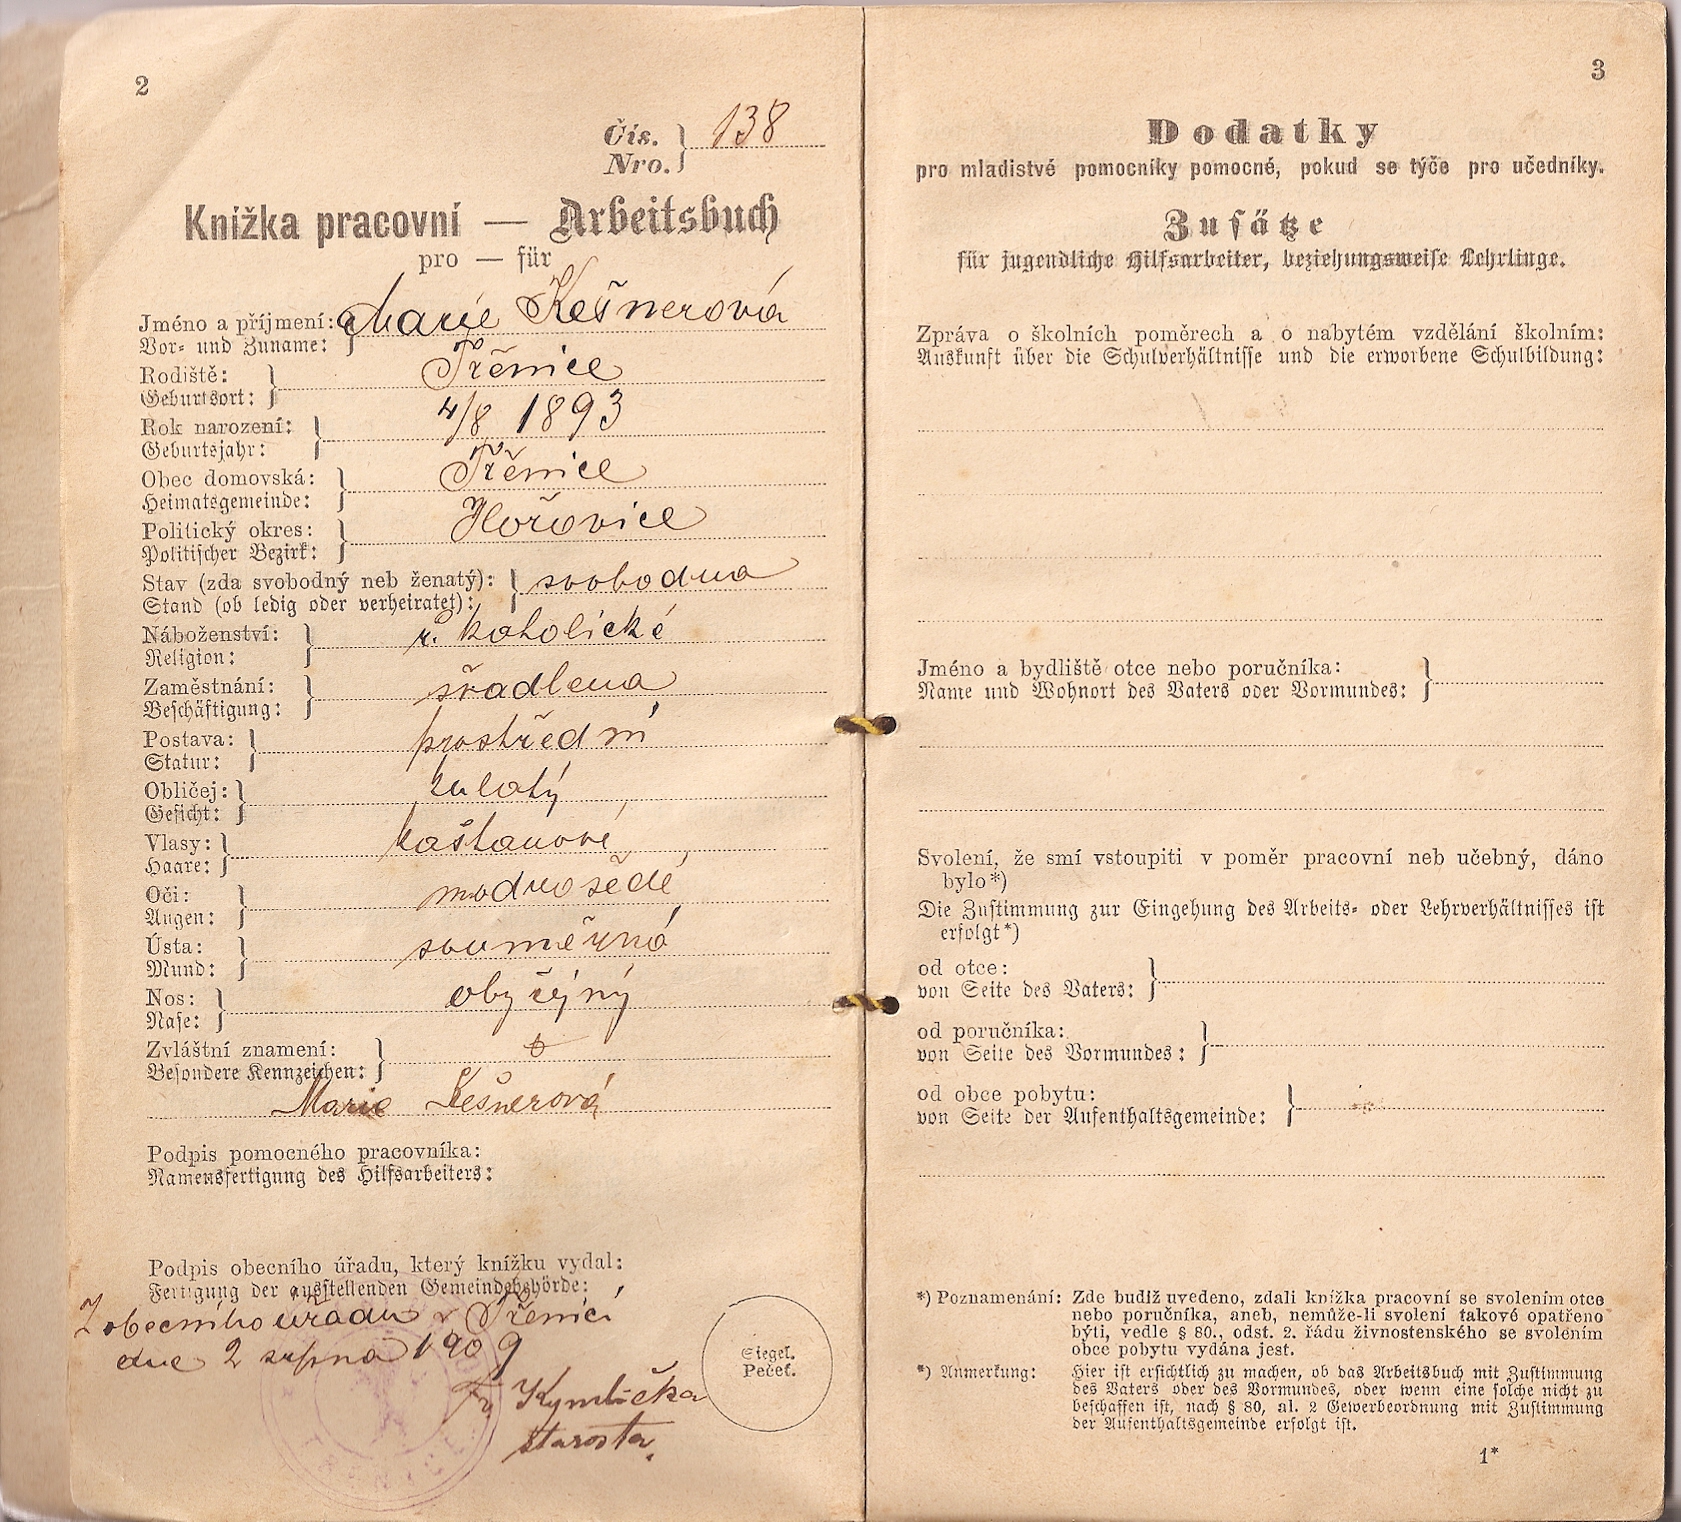 2
Čís.
Nro. } 138
Knížka pracovní — Arbeitsbuch
pro — für
Jméno a příjmení: Marie Kešnerová
Vor- und Zuname:
Rodiště: Třenice
Geburtsort:
Rok narození: 4/8 1893
Geburtsjahr:
Obec domovská: Třenice
Heimatsgemeinde:
Politický okres: Hořovice
Politischer Bezirk:
Stav (zda svobodný neb ženatý): svobodna
Stand (ob ledig oder verheiratet):
Náboženství: ř. katolické
Religion:
Zaměstnání: švadlena
Beschäftigung:
Postava: prostřední
Statur:
Obličej: kulatý
Gesicht:
Vlasy: kaštanové
Haare:
Oči: modrošedé
Augen:
Ústa: souměrná
Mund:
Nos: obyčejný
Nase:
Zvláštní znamení:
Besondere Kennzeichen:
Marie Kešnerová
Podpis pomocného pracovníka:
Namensfertigung des Hilfsarbeiters:
Podpis obecního úřadu, který knížku vydal:
Fertigung der ausstellenden Gemeindebehörde:
Z obecního úřadu v Třenici
dne 2 srpna 1909
Fr. Kymlička
starosta.
Siegel.
Pečeť.
3
Dodatky
pro mladistvé pomocníky pomocné, pokud se týče pro učedníky.
Zusätze
für jugendliche Hilfsarbeiter, beziehungsweise Lehrlinge.
Zpráva o školních poměrech a o nabytém vzdělání školním:
Auskunft über die Schulverhältnisse und die erworbene Schulbildung:
Jméno a bydliště otce nebo poručníka:
Name und Wohnort des Vaters oder Vormundes:
Svolení, že smí vstoupiti v poměr pracovní neb učebný, dáno
bylo*)
Die Zustimmung zur Eingehung des Arbeits- oder Lehrverhältnisses ist
erfolgt*)
od otce:
von Seite des Vaters:
od poručníka:
von Seite des Vormundes:
od obce pobytu:
von Seite der Aufenthaltsgemeinde:
*) Poznamenání: Zde budiž uvedeno, zdali knížka pracovní se svolením otce
nebo poručníka, aneb, nemůže-li svolení takové opatřeno
býti, vedle § 80., odst. 2. řádu živnostenského se svolením
obce pobytu vydána jest.
*) Anmerkung: Hier ist ersichtlich zu machen, ob das Arbeitsbuch mit Zustimmung
des Vaters oder des Vormundes, oder wenn eine solche nicht zu
beschaffen ist, nach § 80, al. 2 Gewerbeordnung mit Zustimmung
der Aufenthaltsgemeinde erfolgt ist.
1*